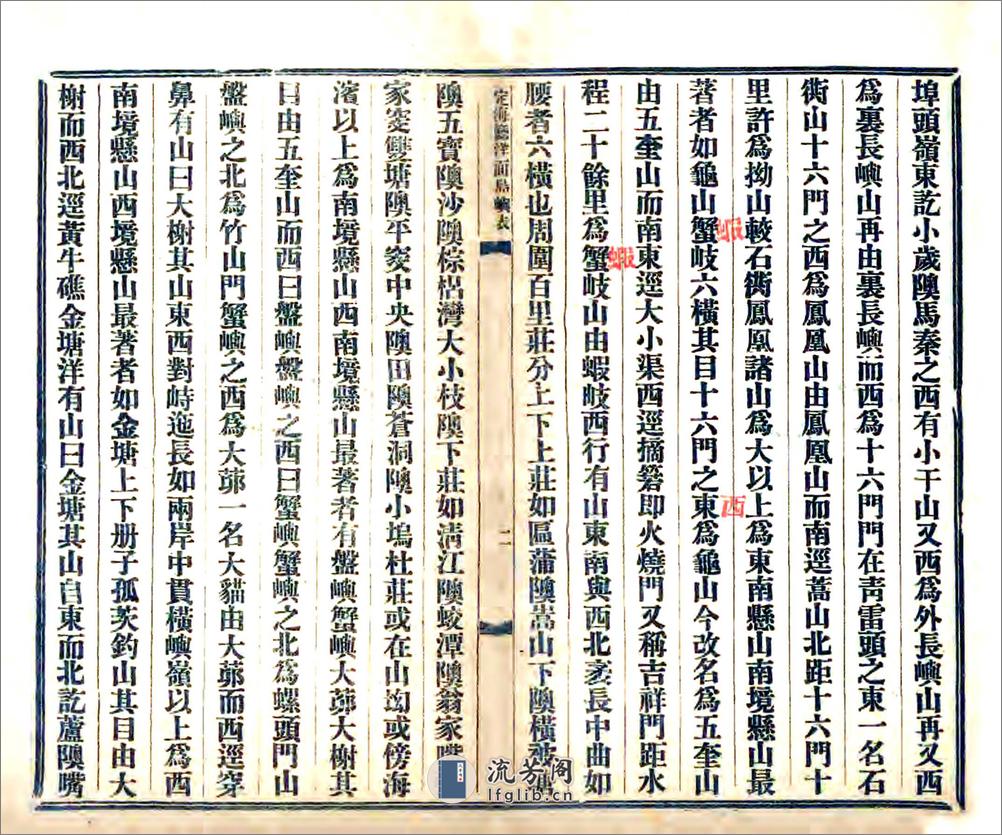 埠頭嶺東訖小歲隩馬秦之西有小干山又西爲外長㠘山再又西
爲裏長㠘山再由裏長㠘而西爲十六門門在靑雷頭之東一名石
衖山十六門之西爲鳳凰山由鳳凰山而南逕蒿山北距十六門十
里許爲拗山較石衖鳳凰諸山爲大以上爲東南懸山南境懸山最
蝦
西
著者如龜山蟹岐六橫其目十六門之東爲龜山今改名爲五奎山
由五奎山而南東逕大小渠西逕摘箬即火燒門又稱吉祥門距水
蝦
程二十餘里爲蟹岐山由蝦岐西行有山東南與西北袤長中曲如
腰者六橫也周圍百里莊分上下上莊如區蒲隩嵩山下隩橫
定海廳洋面島㠘表
二
隩五寶隩沙隩棕梠灣大小枝隩下莊如淸江隩蛟潭隩翁家嘴
家𥥆雙塘隩平𥥆中央隩田隩蒼洞隩小塢杜莊或在山岰或傍海
濱以上爲南境懸山西南境懸山最著者有盤㠘蟹㠘大茆大榭其
目由五奎山而西曰盤㠘盤㠘之西曰蟹㠘蟹㠘之北爲螺頭門山
盤㠘之北爲竹山門蟹㠘之西爲大茆一名大貓由大茆而西逕穿
鼻有山曰大榭其山東西對峙迤長如兩岸中貫橫㠘嶺以上爲西
南境懸山西境懸山最著者如金塘上下册子孤茨釣山其目由大
榭而西北逕黃牛礁金塘洋有山曰金塘其山自東而北訖蘆隩嘴
流芳阁
lfglib.cn